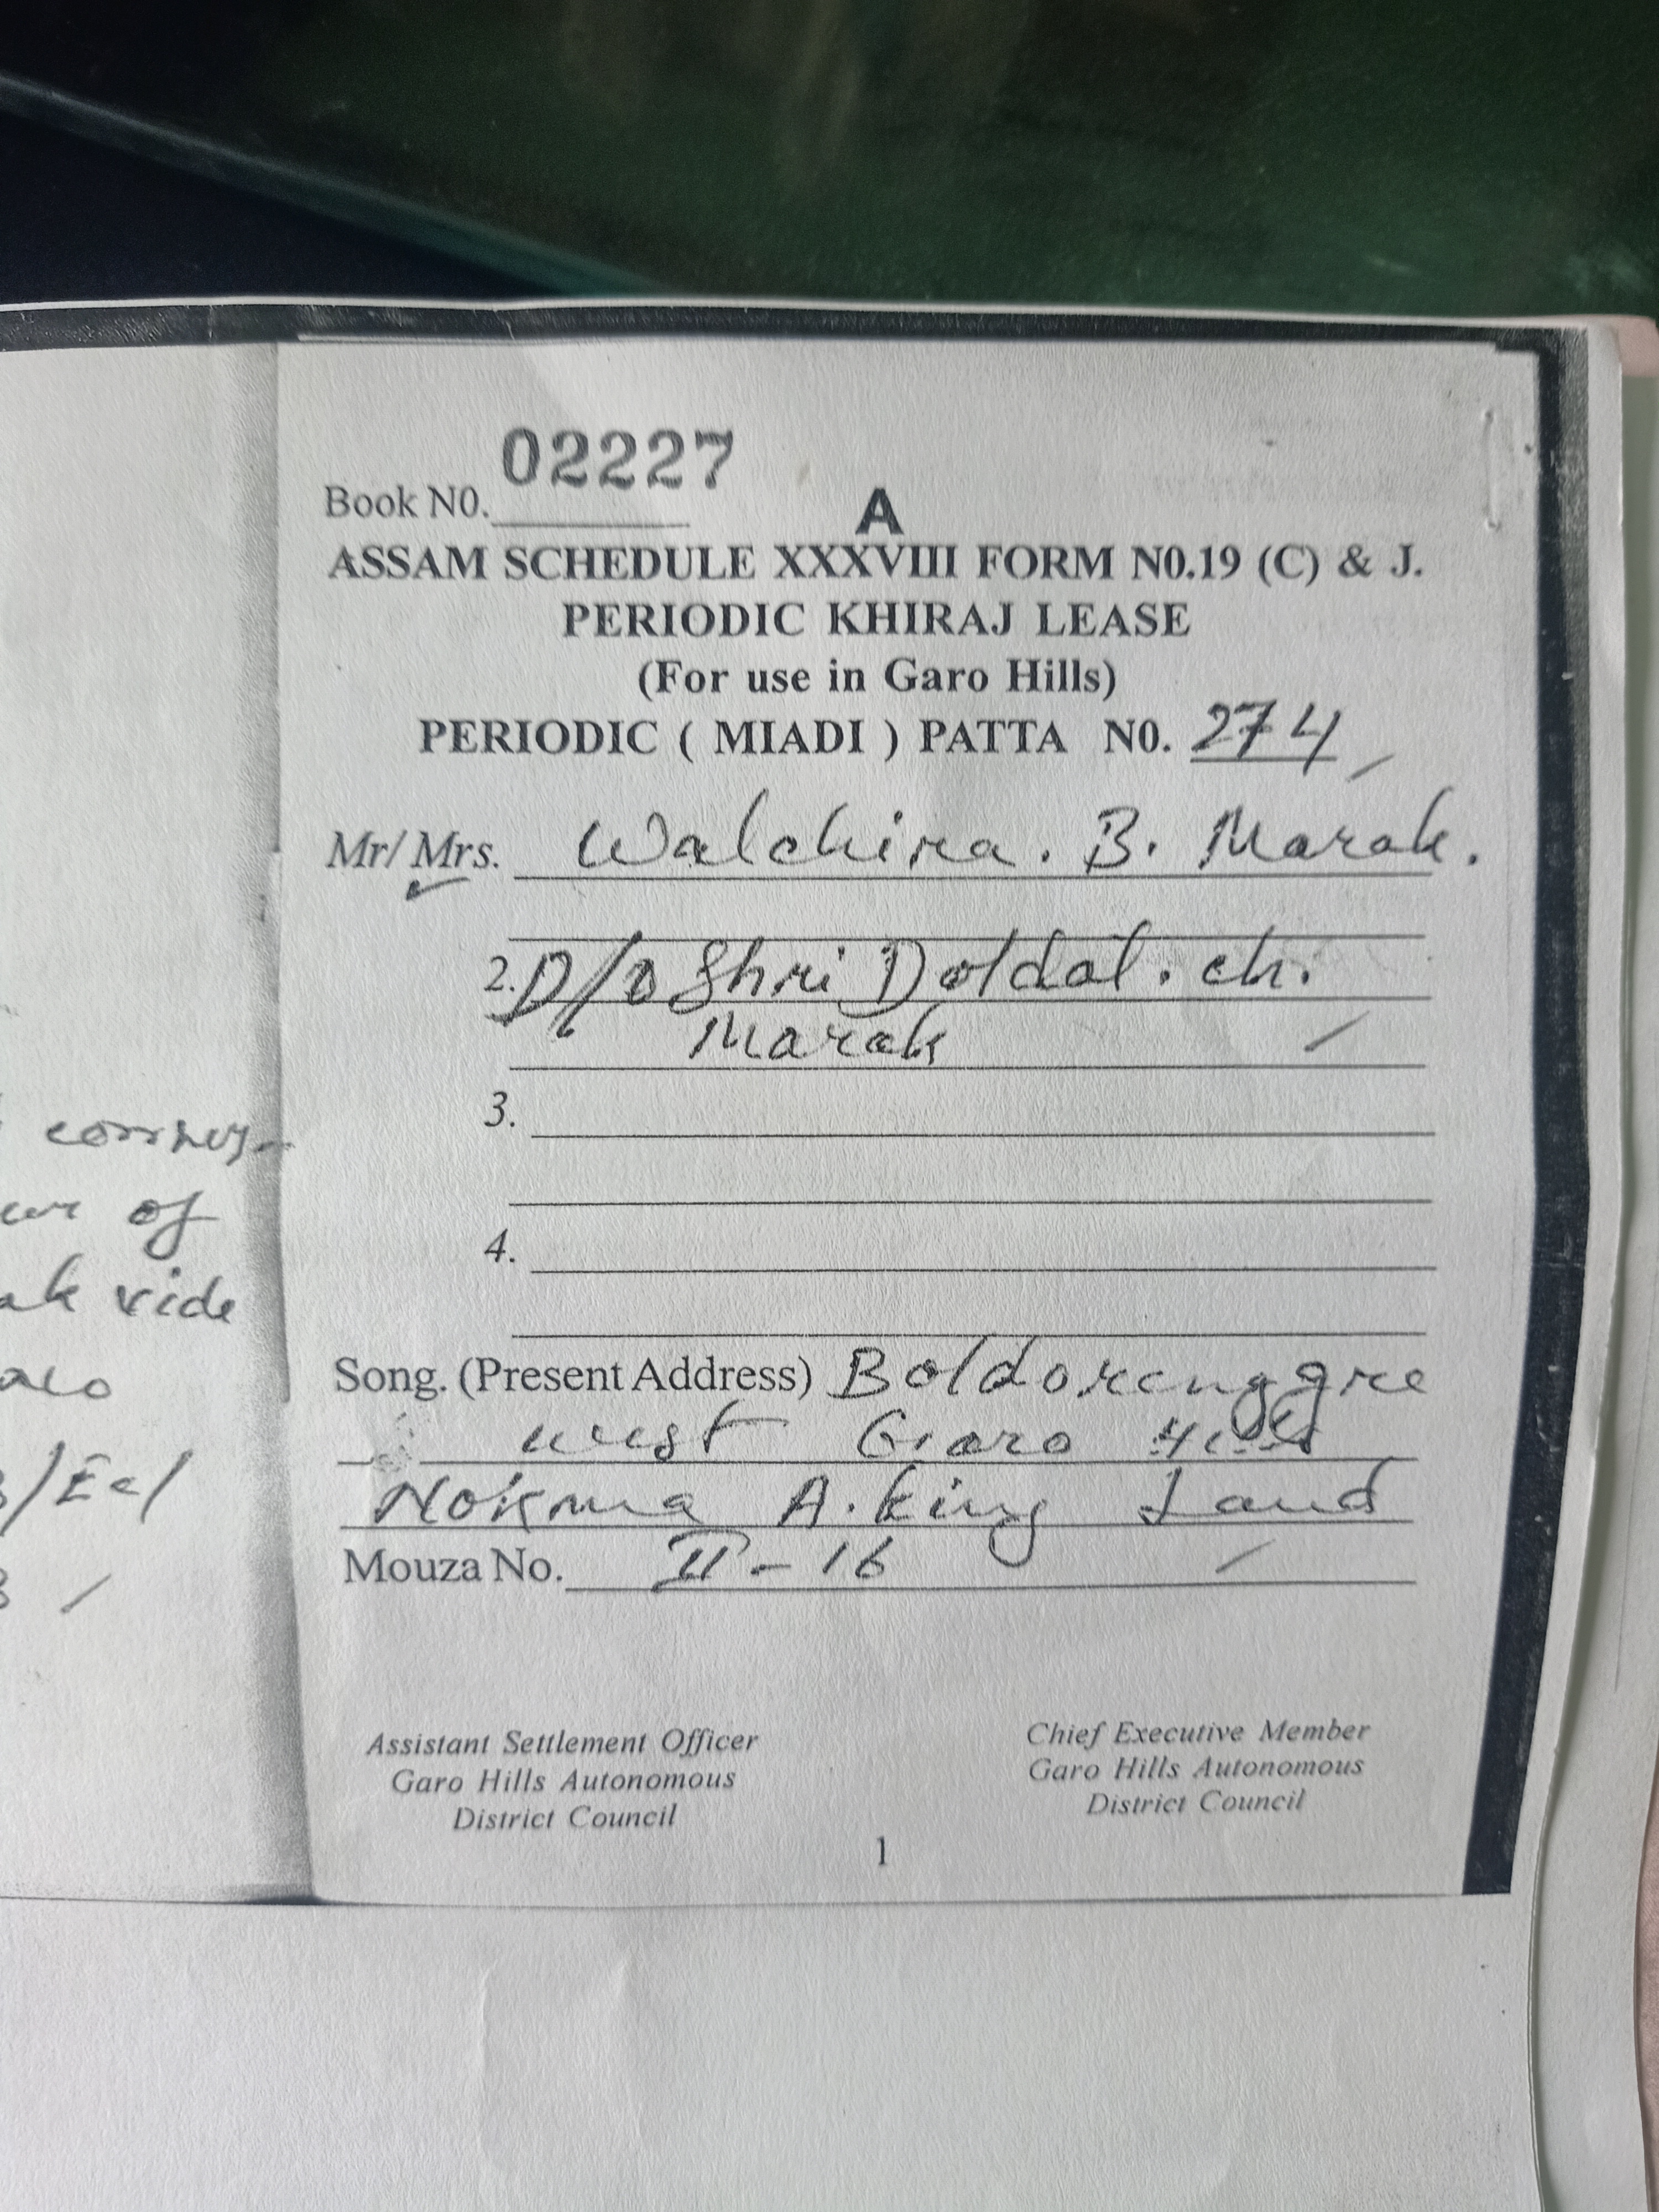 02227
Book N0.
A
ASSAM SCHEDULE XXXVIII FORM N0.19 (C) & J.
PERIODIC KHIRAJ LEASE
(For use in Garo Hills)
PERIODIC ( MIADI ) PATTA N0. 274
Mr/ Mrs. Walchira. B. Marak.
2. D/o Shri Doldal. ch.
Marak
3.
4.
Song. (Present Address) Boldorenggre
West Garo Hills
Nokma A.king Land
Mouza No. II - 16
Assistant Settlement Officer
Garo Hills Autonomous
District Council
Chief Executive Member
Garo Hills Autonomous
District Council
1
of
vide